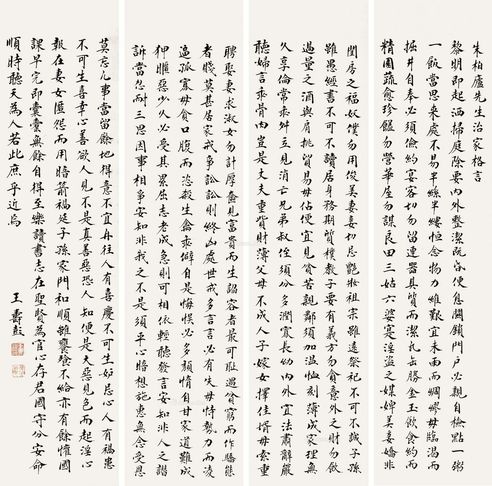 朱柏廬先生治家格言
黎明即起洒掃庭除要內外整潔既昏便息關鎖門戶必親自檢點一粥
一飯當思來處不易半絲半縷恒念物力維艱宜未雨而綢繆毋臨渴而
掘井自奉必須儉約宴客切勿留連器具質而潔瓦缶勝金玉飲食約而
精園蔬愈珍饈勿營華屋勿謀良田三姑六婆寔淫盜之媒婢美妾嬌非
閨房之福奴僕勿用俊美妻妾切忌艷妝祖宗雖遠祭祀不可不誠子孫
雖愚經書不可不讀居身務期質樸教子要有義方勿貪意外之財勿飲
過量之酒與肩挑貿易毋佔便宜見貧苦親鄰須加溫恤刻薄成家理無
久享倫常乖舛立見消亡兄弟叔侄須分多潤寡長幼內外宜法肅辭嚴
聽婦言乖骨肉豈是丈夫重貲財薄父母不成人子嫁女擇佳婿毋索重
聘娶妻求淑女勿計厚奩見富貴而生諂容者最可恥遇貧窮而作驕態
者賤莫甚居家戒爭訟訟則終凶處世戒多言言必有失毋恃勢力而凌
逼孤寡毋貪口腹而恣殺生禽乖僻自是悔悮必多頹惰自甘家道難成
狎昵惡少久必受其累屈志老成急則可相依輕聽發言安知非人之譖
訴當忍耐三思因事相爭安知非我之不是須平心暗想施惠無念受恩
莫忘凡事當留餘地得意不宜再往人有喜慶不可生妒忌心人有禍患
不可生喜幸心善欲人見不是真善惡恐人知便是大惡見色而起淫心
報在妻女匿怨而用暗箭禍延子孫家門和順雖饔飧不給亦有餘懽國
課早完即囊橐無餘自得至樂讀書志在聖賢為官心存君國守分安命
順時聽天為人若此庶乎近焉
王壽彭